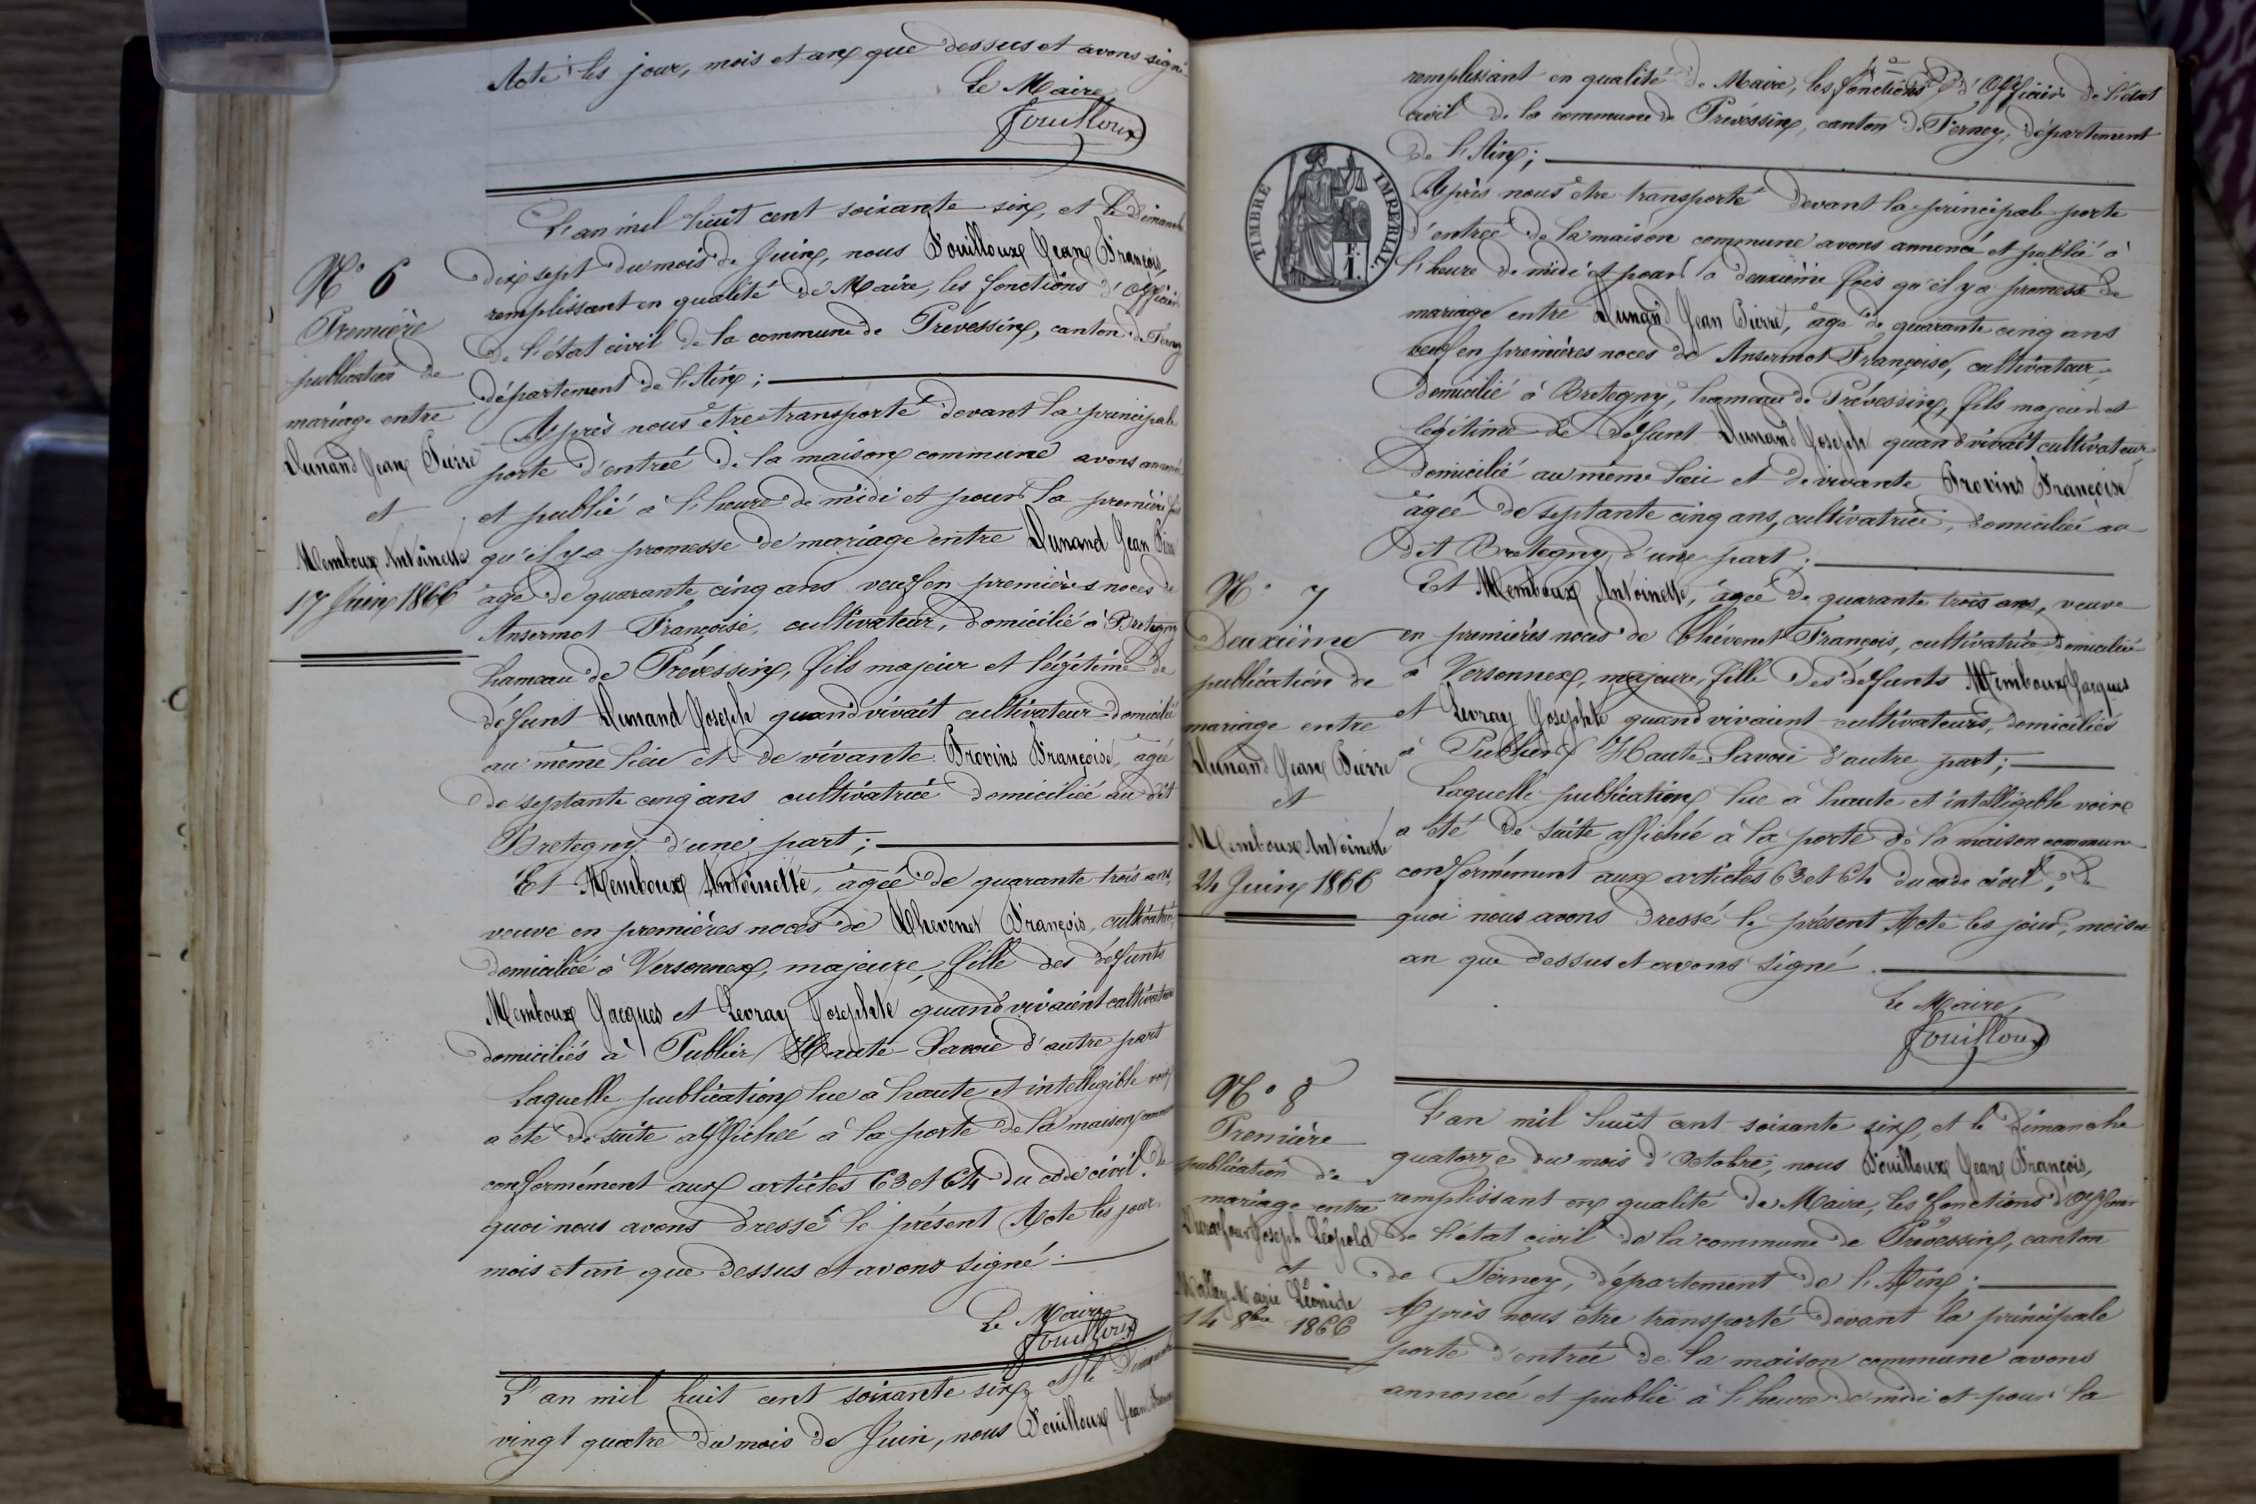 Acte les jour, mois et an que dessus et avons signé
Le Maire
Fouilloux
N° 6
Première
publication de
mariage entre
Dunand Jean Pierre
et
Memboux Antoinette
17 Juin 1866
L'an mil huit cent soixante six, et le Dimanche
dix sept du mois de Juin, nous Fouilloux Jean François,
remplissant en qualité de Maire, les fonctions d'Officier
de l'état civil de la commune de Prévessin, canton de Ferney
département de l'Ain;
Après nous être transporté devant la principale
porte d'entrée de la maison commune avons annoncé
et publié à l'heure de midi et pour la première fois
qu'il y a promesse de mariage entre Dunand Jean Pierre
âgé de quarante cinq ans veuf en premières noces de
Ansermot Françoise, cultivateur, domicilié à Bretegny
hameau de Prévessin, fils majeur et légitime de
défunt Dunand Joseph quand vivait cultivateur domicilié
au même lieu et de vivante Provins Françoise, âgée
de septante cinq ans cultivatrice domiciliée au dit
Bretegny d'une part;
Et Memboux Antoinette, âgée de quarante trois ans,
veuve en premières noces de Chevenet François, cultivatrice,
domiciliée à Versonnex, majeure, fille des défunts
Memboux Jacques et Levray Josephte quand vivaient cultivateurs
domiciliés à Publier Haute Savoie d'autre part
Laquelle publication lue à haute et intelligible voix
a été de suite affichée à la porte de la maison commune
conformément aux articles 63 et 64 du code civil. De
quoi nous avons dressé le présent Acte les jour,
mois et an que dessus et avons signé.
Le Maire
Fouilloux
L'an mil huit cent soixante six, et le Dimanche
vingt quatre du mois de Juin, nous Fouilloux Jean François
remplissant en qualité de Maire, les fonctions d'Officier de l'état
civil de la commune de Prévéssin, canton de Ferney, département
de l'Ain;
TIMBRE IMPERIAL
F.
1.
Après nous être transporté devant la principale porte
d'entrée de la maison commune avons annoncé et publié à
l'heure de midi et pour la deuxième fois qu'il y a promesse de
mariage entre Dunand Jean Pierre, âgé de quarante cinq ans
veuf en premières noces de Ansermot Françoise, cultivateur,
domicilié à Bretegny, hameau de Prévessin, fils majeur et
légitime de défunt Dunand Joseph quand vivait cultivateur
domicilié au même lieu et de vivante Provins Françoise
âgée de septante cinq ans, cultivatrice, domiciliée au
dit Bretegny, d'une part;
N° 7
Deuxième
publication de
mariage entre
Dunand Jean Pierre
et
Memboux Antoinette
24 Juin 1866
Et Memboux Antoinette, âgée de quarante trois ans, veuve
en premières noces de Chévenet François, cultivatrice domiciliée
à Versonnex, majeure, fille des défunts Memboux Jacques
et Levray Josephte quand vivaient cultivateurs, domiciliés
à Publier Haute Savoie d'autre part;
Laquelle publication lue à haute et intelligible voix
a été de suite affichée à la porte de la maison commune
conformément aux articles 63 et 64 du code civil, de
quoi nous avons dressé le présent Acte les jour, mois et
an que dessus et avons signé.
Le Maire,
Fouilloux
N° 8
Première
publication de
mariage entre
Durafour Joseph Léopold
et
Mallay Marie Léonide
14 8bre 1866
L'an mil huit cent soixante six, et le Dimanche
quatorze du mois d'Octobre, nous Fouilloux Jean François,
remplissant en qualité de Maire, les fonctions d'Officier
de l'état civil de la commune de Prévessin, canton
de Ferney, département de l'Ain;
Après nous être transporté devant la principale
porte d'entrée de la maison commune avons
annoncé et publié à l'heure de midi et pour la